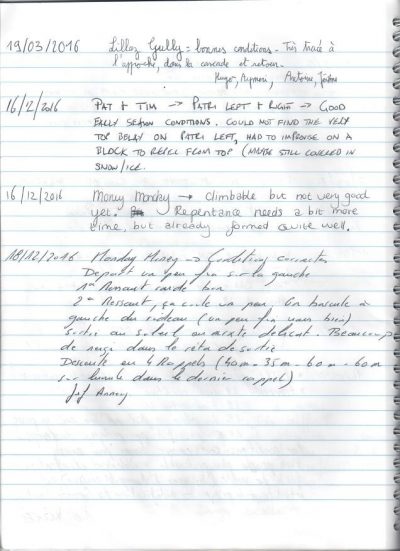 19/03/2016 Lillaz Gully = bonnes conditions. Très tracé à
l'approche, dans la cascade et retour.
Hugo, Aymeric, Antoine, Jérôme
16/2/2016 PAT + TIM → PATRI LEFT + RIGHT → GOOD
EARLY SEASON CONDITIONS. COULD NOT FIND THE VERY
TOP BELAY ON PATRI LEFT, HAD TO IMPROVISE ON A
BLOCK TO REBEL FROM TOP (MAYBE STILL COVERED IN
SNOW/ICE.
16/12/2016 Money Monday → climbable but not very good
yet. Repentance needs a bit more
time, but already formed quite well.
18/12/2016 Monday Money → Conditions correctes
Depart un peu fin sur la gauche
1er Ressaut raide bien
2e Ressaut, ça coule un peu. On bascule à
gauche du rideau (un peu fin mais bien)
Sortie au soleil en mixte délicat. Beaucoup
de neige dans le de sortie
Descente en 4 Rappels (40m - 35m - 60m - 60m
sur lunule dans le dernier rappel)
Jef Annecy